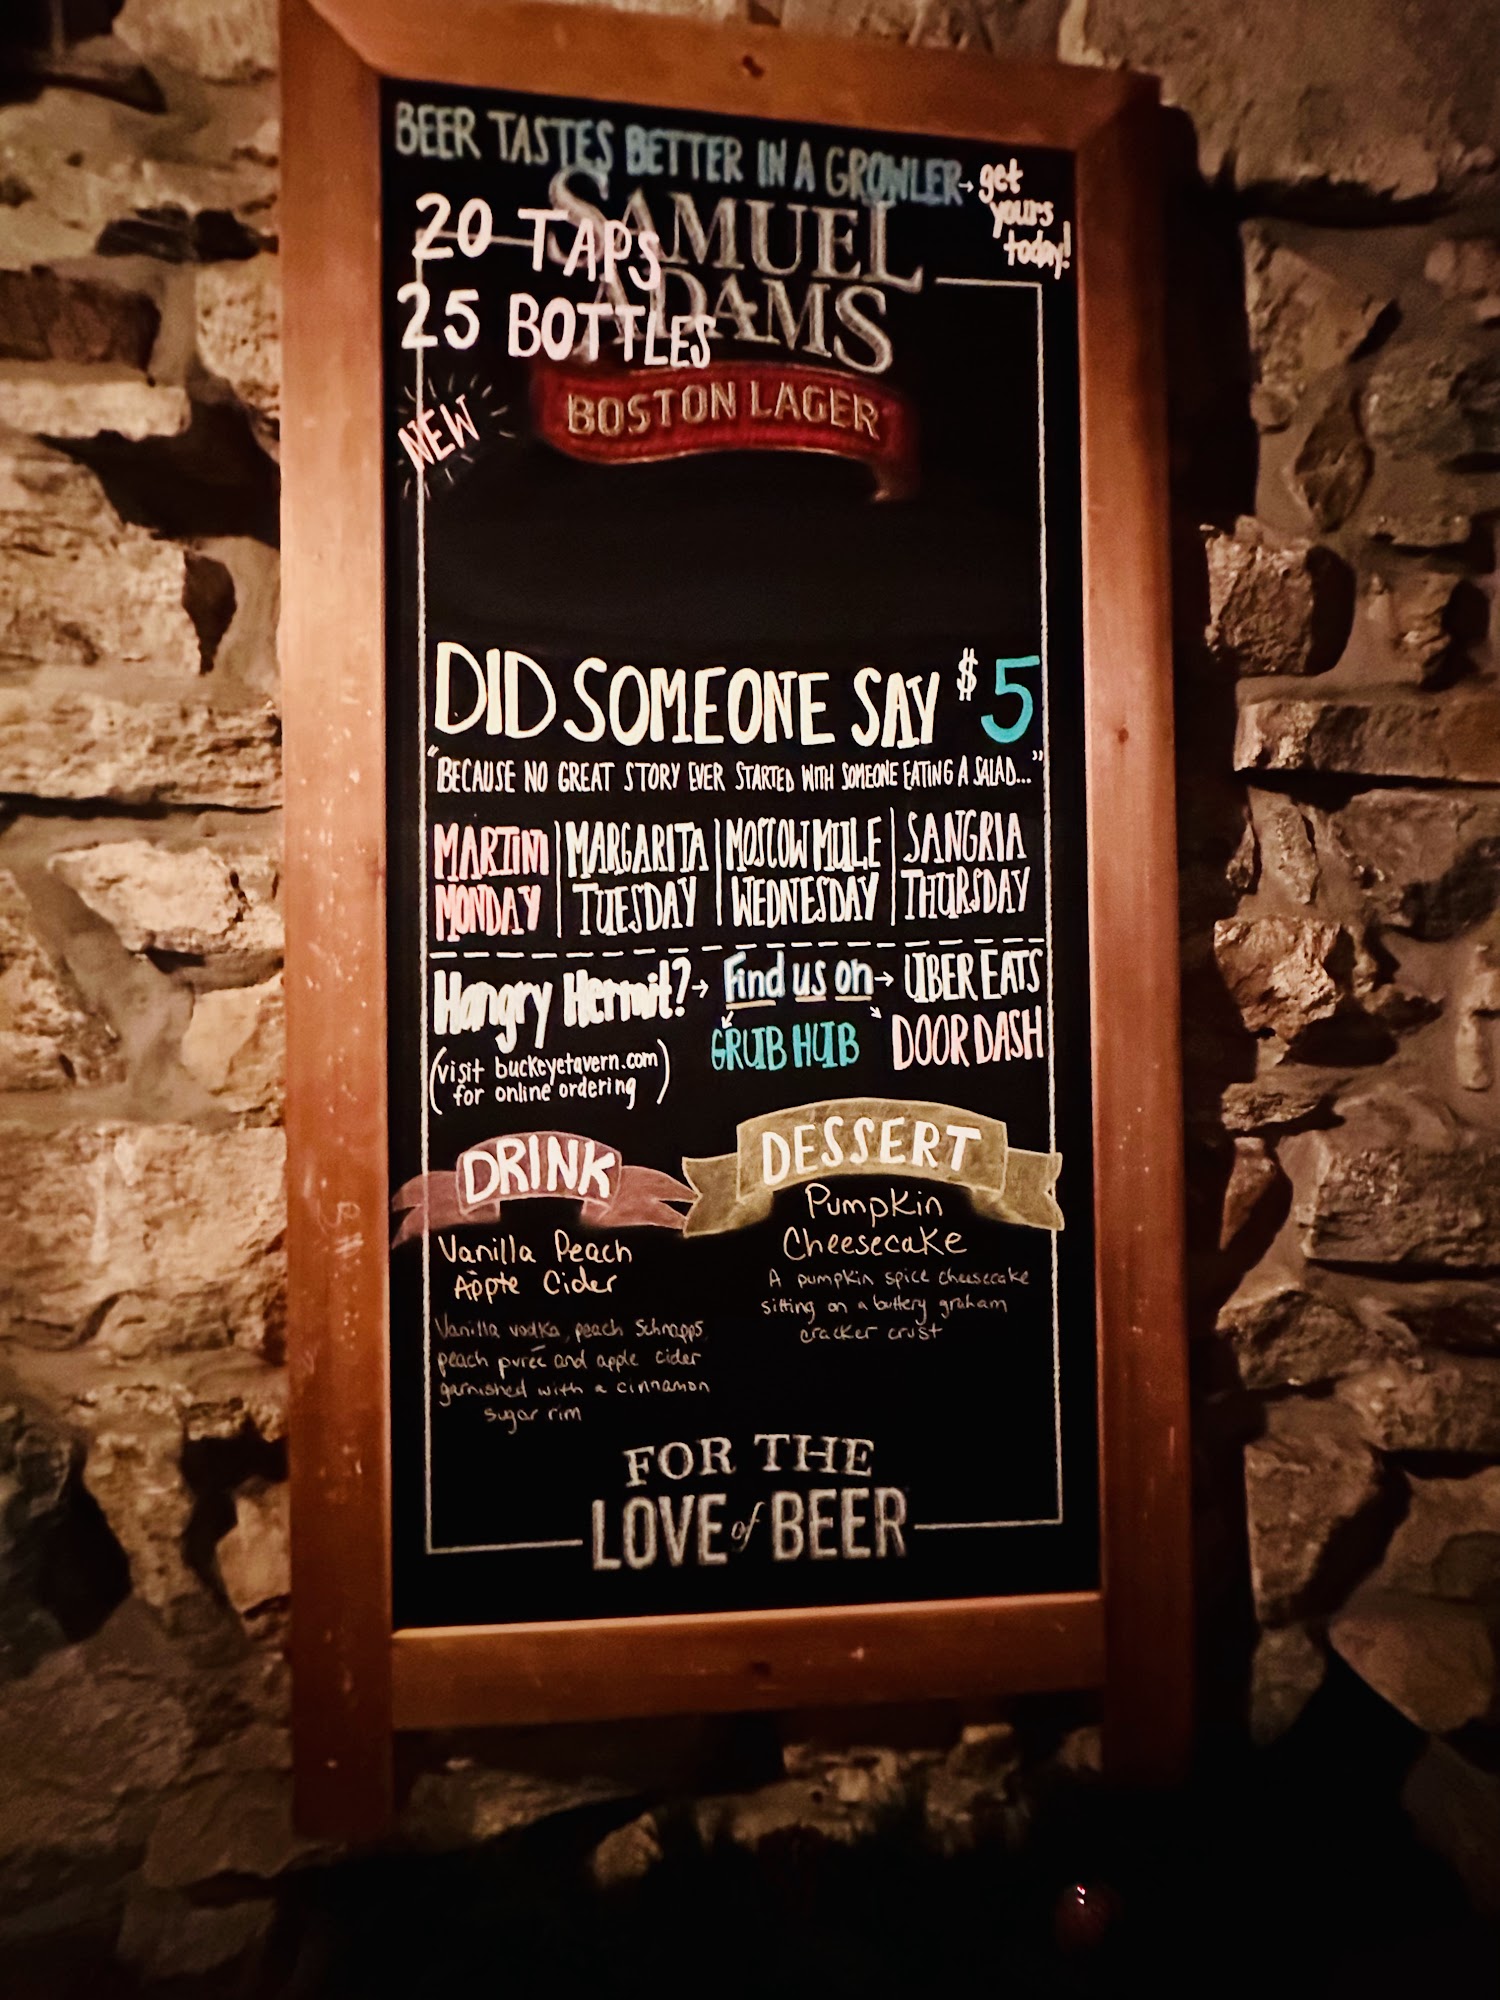 BEER TASTES BETTER IN A GROWLER→ get
yours
today!
SAMUEL
20 TAPS
ADAMS
25 BOTTLES
BOSTON LAGER
NEW
DID SOMEONE SAY $5
"BECAUSE NO GREAT STORY EVER STARTED WITH SOMEONE EATING A SALAD..."
MARTINI | MARGARITA | MOSCOW MULE | SANGRIA
MONDAY | TUESDAY | WEDNESDAY | THURSDAY
Hangry Hermit? → Find us on → UBER EATS
GRUB HUB DOOR DASH
(visit buckeyetavern.com
for online ordering)
DRINK
Vanilla Peach
Apple Cider
Vanilla vodka, peach Schnapps,
peach purée and apple cider
garnished with a cinnamon
sugar rim
DESSERT
Pumpkin
Cheesecake
A pumpkin spice cheesecake
sitting on a buttery graham
cracker crust
FOR THE
LOVE of BEER